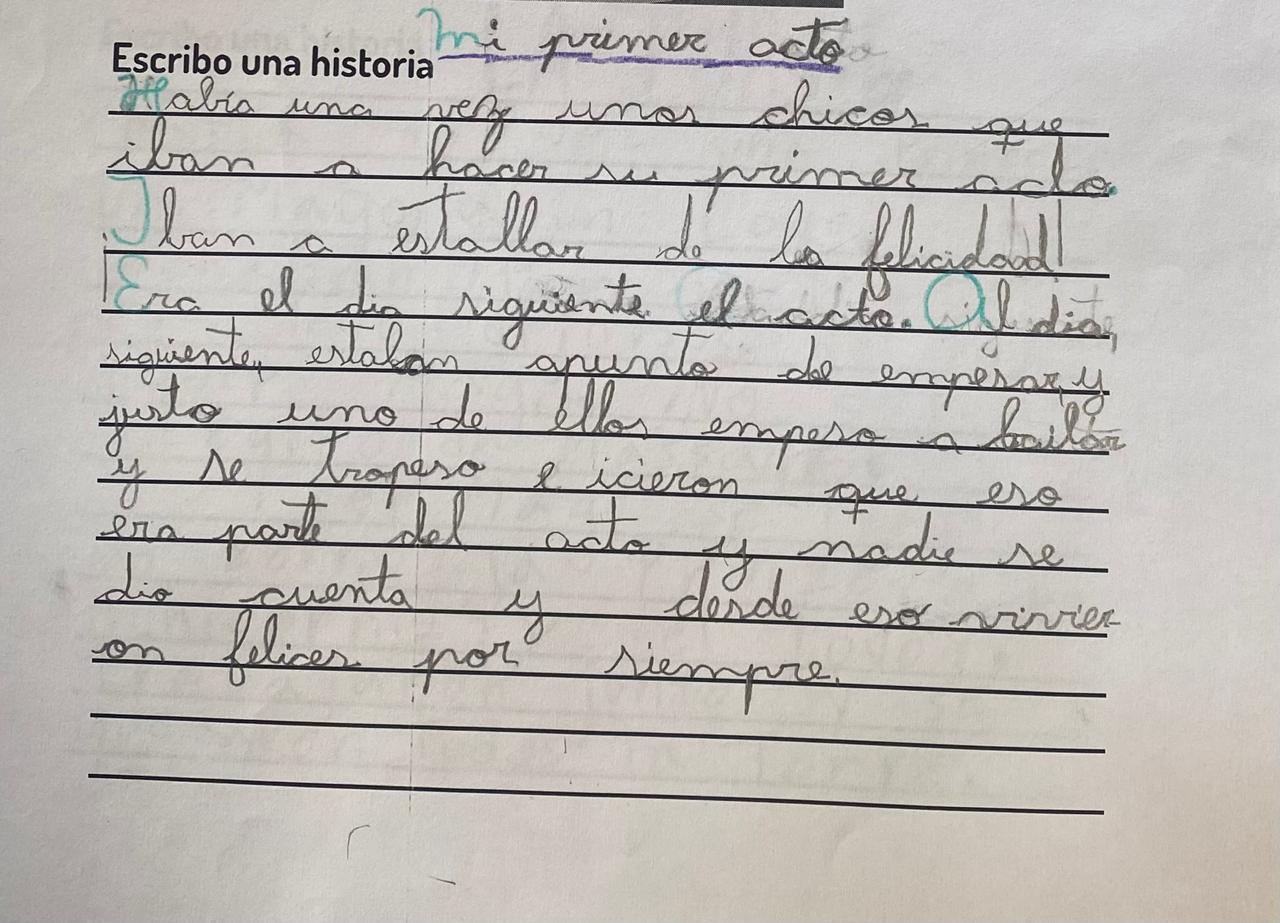 Mi primer acto
Escribo una historia
Había una vez unos chicos que
iban a hacer su primer acto.
Iban a estallar de la felicidad!
Era el dia siguiente el acto. Al dia,
siguiente, estaban apunto de empesar, y
justo uno de ellos empeso a bailar
y se tropeso e icieron que eso
era parte del acto y nadie se
dio cuenta y desde eso vivier
on felices por siempre.